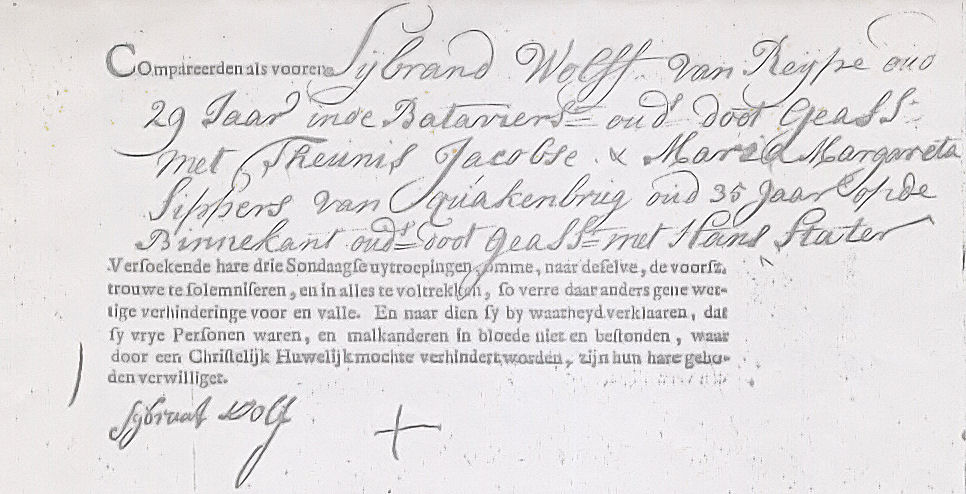 Compareerden als vooren Sijbrand Wolff van Reijpe oud
29 Jaar inde Bataviers= ouds doot Geasst
met Theunis Jacobse & Maria Margareta
Sippers van Quakenbrug oud 35 Jaar opde
Binnekant ouds doot geasst met Hans Stater
Versoekende hare drie Sondaagse uytroepingen, omme, naar deselve, de voorsz.
trouwe te solemniseren, en in alles te voltrekken, so verre daar anders gene wet-
tige verhinderinge voor en valle. En naar dien sy by waarheyd verklaaren, dat
sy vrye Personen waren, en malkanderen in bloede niet en bestonden, waar
door een Christelijk Huwelijk mochte verhindert worden, zijn hun hare gebo-
den verwilliget.
Sijbrant Wolf